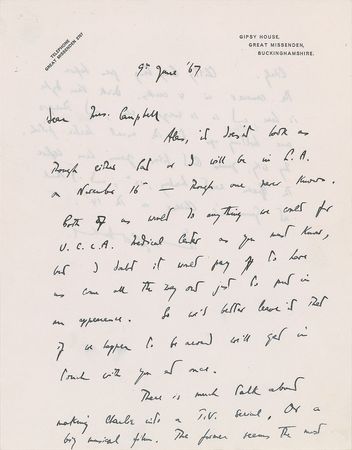 TELEPHONE
GREAT MISSENDEN 2757
GIPSY HOUSE,
GREAT MISSENDEN,
BUCKINGHAMSHIRE.
9th June '67
Dear Mrs. Campbell
Alas, it doesn't look as
though either Pat or I will be in L.A.
on November 16th — though one never knows.
Both of us would do anything we could for
U.C.L.A. Medical Center as you must know,
but I doubt it would pay off to have
us come all the way out just to put in
an appearance. So we'd better leave it that
if we happen to be around will get in
touch with you at once.
There is much talk about
making Charlie into a T.V. serial, or a
big musical film. The former seems the most